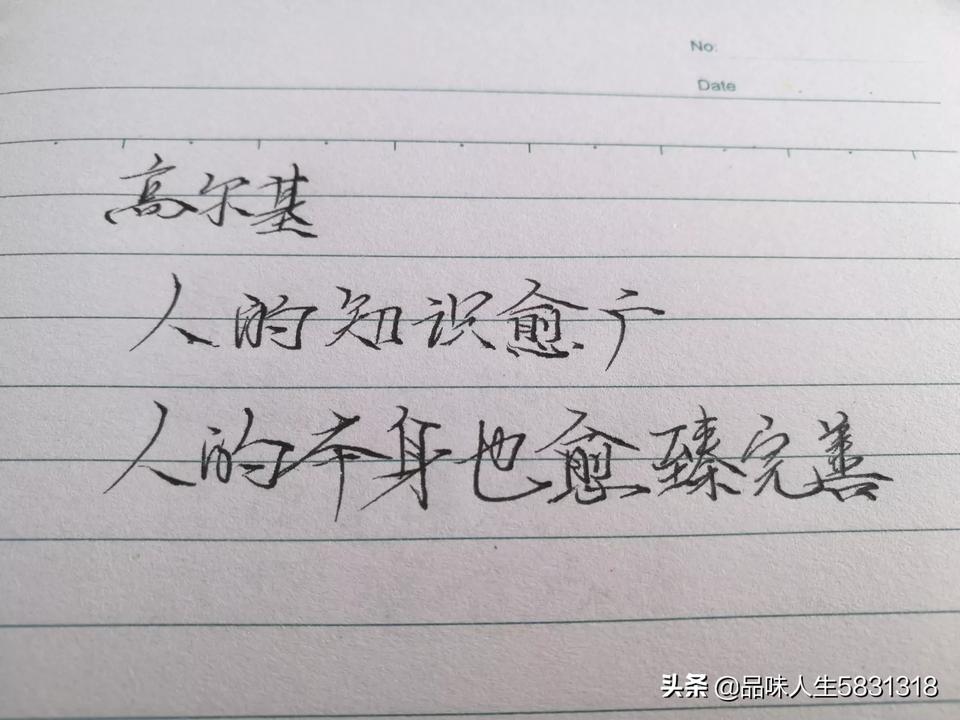 No:
Date
高尔基
人的知识愈广
人的本身也愈臻完善
头条 @品味人生5831318